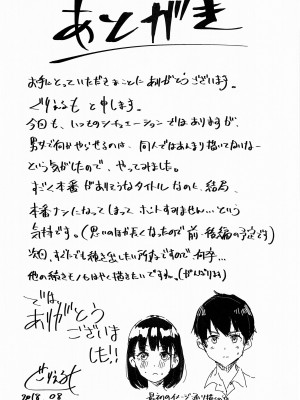 あとがき
お手にとっていただきまことにありがとうございます。
ぐりえるもと申します。
今回も、いつものシチュエーションではありますが、
男女で何かやらせるのは、同人ではあんまり描いてないなー
という気がしたので、やってみました。
すごく本番がありそうなタイトルなのに、結局、
本番ナシになってしまってホントすみません…という
気持です。(思いのほか長くなったので前・後編の予定です)
次回、すぐにでも続き出したい所存ですので何卒…
他の続きモノもはやく描きたいですね。(がんばります)
では
ありがとう
ございま
した!!
ぐりえるも
2018 08
最初のイメージ